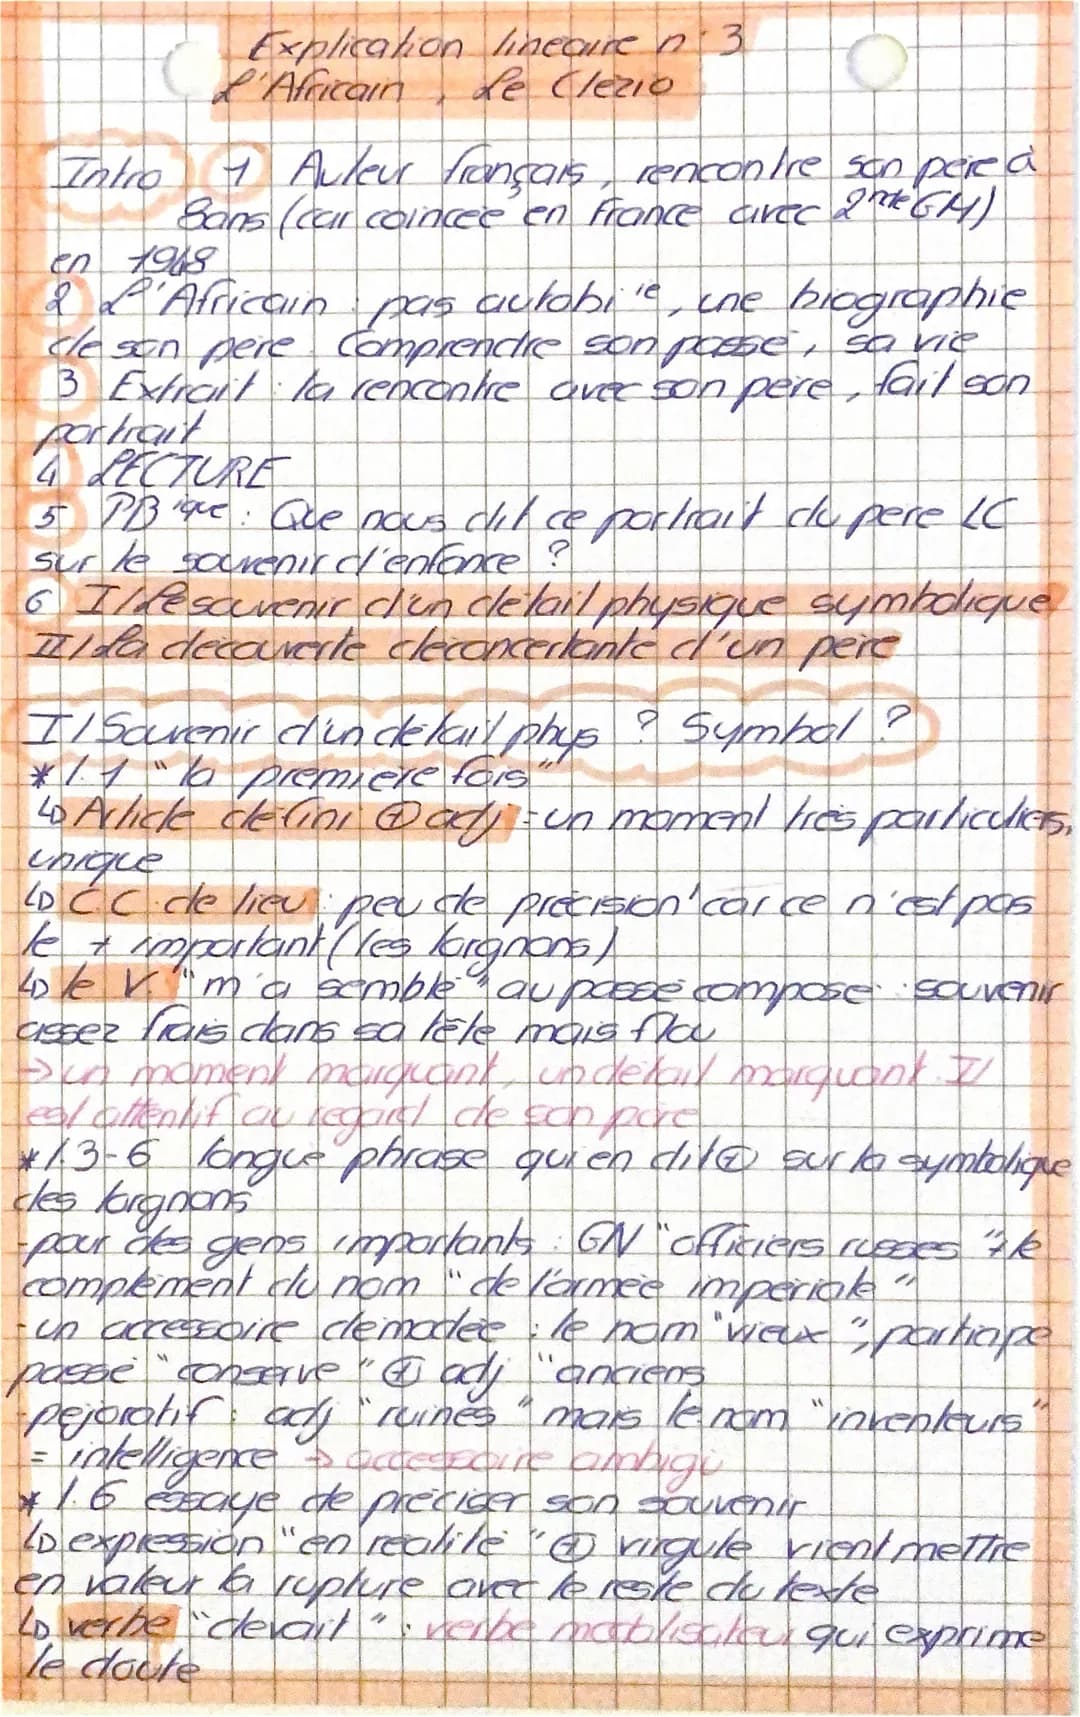 Explication lineaire n°3
L'Africain, Le Clezio
Intro 1 Auteur français, rencontre son père à
8ans (car coincée en France avec 2nde GM)
en 1948
2 L'Africain : pas autobi ie, une biographie
de son pere. Comprendre son passé, sa vie
3 Extrait : la rencontre avec son père, fait son
portrait
4 LECTURE
5 PB ique : Que nous dit ce portrait du pere LC
sur le souvenir d'enfance ?
6 I/ Le souvenir d'un détail physique symbolique
II/ La decouverte deconcertante d'un pere
I/ Souvenir d'un détail phys ? Symbol ?
* l.1 "la premiere fois"
↳ Article defini ⊕ adj = un moment très particuliers,
unique
↳ C.C. de lieu : peu de précision car ce n'est pas
le + important (les lorgnons)
↳ le V. "m'a semblé" au passé composé : souvenir
assez frais dans sa tête mais flou
→ un moment marquant, un détail marquant. Il
est attentif au regard de son père
* l.3-6 longue phrase qui en dit ⊕ sur la symbolique
des lorgnons
- pour des gens importants : GN "officiers russes" + le
complément du nom "de l'armée impériale"
- un accessoire demodée : le nom "vieux", participe
passé "conservé" ⊕ adj "anciens
- pejoratif : adj "ruinés" mais le nom "inventeurs"
= intelligence → accessoire ambigü
* l.6 essaye de préciser son souvenir
↳ expression "en réalité" ⊕ virgule vient mettre
en valeur la rupture avec le reste du texte
↳ verbe "devait" : verbe modalisateur qui exprime
le doute